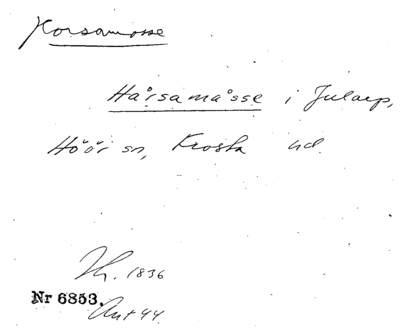 Korsamosse
Hårsamåsse i Julaep,
Höör sn, Frosta hd.
Th. 1836
Nr 6853.
Ant 44